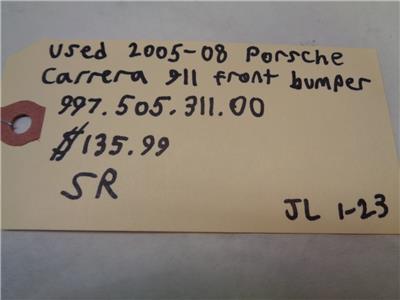 used 2005-08 Porsche
Carrera 911 front bumper
997.505.311.00
$135.99
SR
JL 1-23